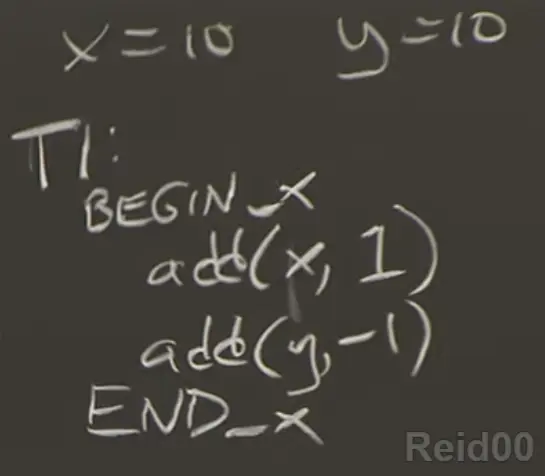 x=10 y=10
T1:
BEGIN_X
add(x, 1)
add(y,-1)
END_X
Reid00